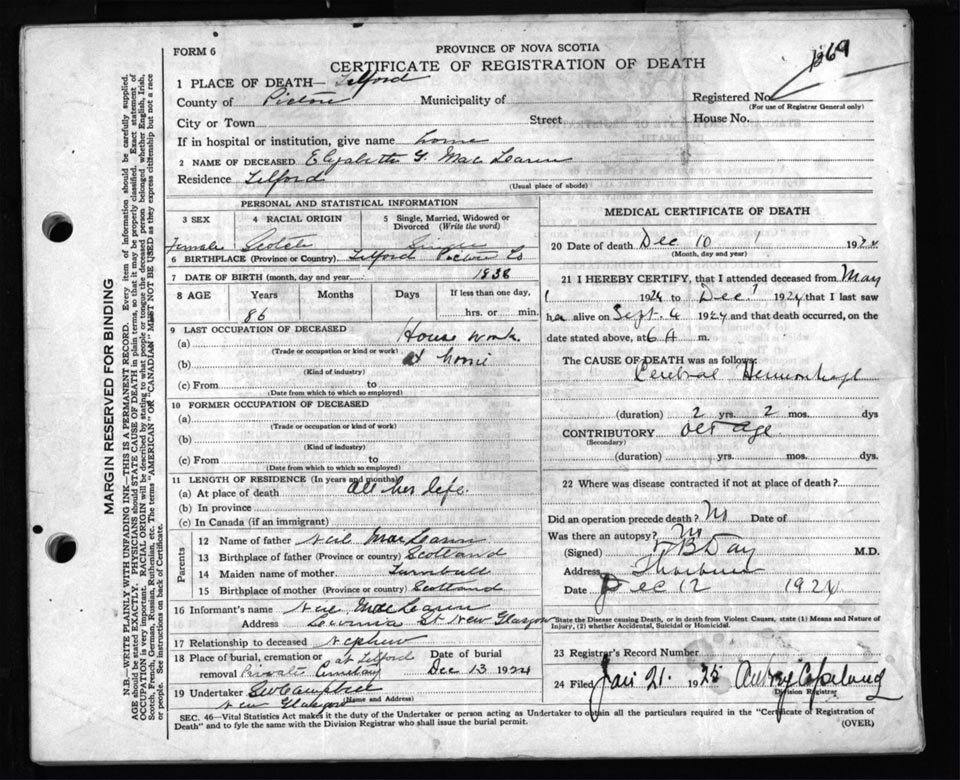 FORM 6
PROVINCE OF NOVA SCOTIA
CERTIFICATE OF REGISTRATION OF DEATH
1 PLACE OF DEATH— Telford
County of Pictou Municipality of
Registered No. 1269
(For use of Registrar General only)
City or Town Street House No.
If in hospital or institution, give name home
2 NAME OF DECEASED Elizabeth G. MacLaren
Residence Telford
(Usual place of abode)
PERSONAL AND STATISTICAL INFORMATION
3 SEX 4 RACIAL ORIGIN 5 Single, Married, Widowed or Divorced (Write the word)
Female Scotch Single
6 BIRTHPLACE (Province or Country) Telford Pictou Co
7 DATE OF BIRTH (month, day and year) 1838
8 AGE Years Months Days If less than one day,
86 hrs. or min.
9 LAST OCCUPATION OF DECEASED
(a) House work
(Trade or occupation or kind or work)
(b) at home
(Kind of industry)
(c) From to
(Date from which to which so employed)
10 FORMER OCCUPATION OF DECEASED
(a)
(Trade or occupation or kind of work)
(b)
(Kind of industry)
(c) From to
(Date from which to which so employed)
11 LENGTH OF RESIDENCE (In years and months)
(a) At place of death All her life.
(b) In province
(c) In Canada (if an immigrant)
Parents
12 Name of father Neil MacLaren
13 Birthplace of father (Province or country) Scotland
14 Maiden name of mother Turnbull
15 Birthplace of mother (Province or country) Scotland
16 Informant's name Neil MacLaren
Address St New Glasgow
17 Relationship to deceased Nephew
18 Place of burial, cremation or removal at Telford Private Cemetery
Date of burial Dec 13 1924
19 Undertaker Campbell
New Glasgow
Name and Address
MEDICAL CERTIFICATE OF DEATH
20 Date of death Dec 10 1924
(Month, day and year)
21 I HEREBY CERTIFY, that I attended deceased from May
1 1924 to Dec 1924 that I last saw
her alive on Sept. 6 1924 and that death occurred, on the
date stated above, at 6 A m.
The CAUSE OF DEATH was as follows:
Cerebral Hemorrhage
(duration) 2 yrs. 2 mos. dys
CONTRIBUTORY Old age
(Secondary)
(duration) yrs. mos. dys.
22 Where was disease contracted if not at place of death?
Did an operation precede death? No Date of
Was there an autopsy? No
(Signed) B Day M.D.
Address Thorburn
Date Dec 12 1924
State the Disease causing Death, or in death from Violent Causes, state (1) Means and Nature of Injury, (2) whether Accidental, Suicidal or Homicidal.
23 Registrar's Record Number
24 Filed Jan 21. 1925 Copeland
Division Registrar
SEC. 46—Vital Statistics Act makes it the duty of the Undertaker or person acting as Undertaker to obtain all the particulars required in the "Certificate of Registration of
Death" and to fyle the same with the Division Registrar who shall issue the burial permit. (OVER)
MARGIN RESERVED FOR BINDING
N.B.—WRITE PLAINLY WITH UNFADING INK—THIS IS A PERMANENT RECORD. Every item of information should be carefully supplied.
AGE should be stated EXACTLY. PHYSICIANS should STATE CAUSE OF DEATH in plain terms, so that it may be properly classified. Exact statement of
OCCUPATION is very important. RACIAL ORIGIN will be described by stating to what people or tongue the deceased person belonged whether English, Irish,
Scotch, French, German, Russian, Ruthenian, etc. The terms "AMERICAN" OR "CANADIAN" MUST NOT BE USED as they express citizenship but not a race
or people. See instructions on back of Certificate.